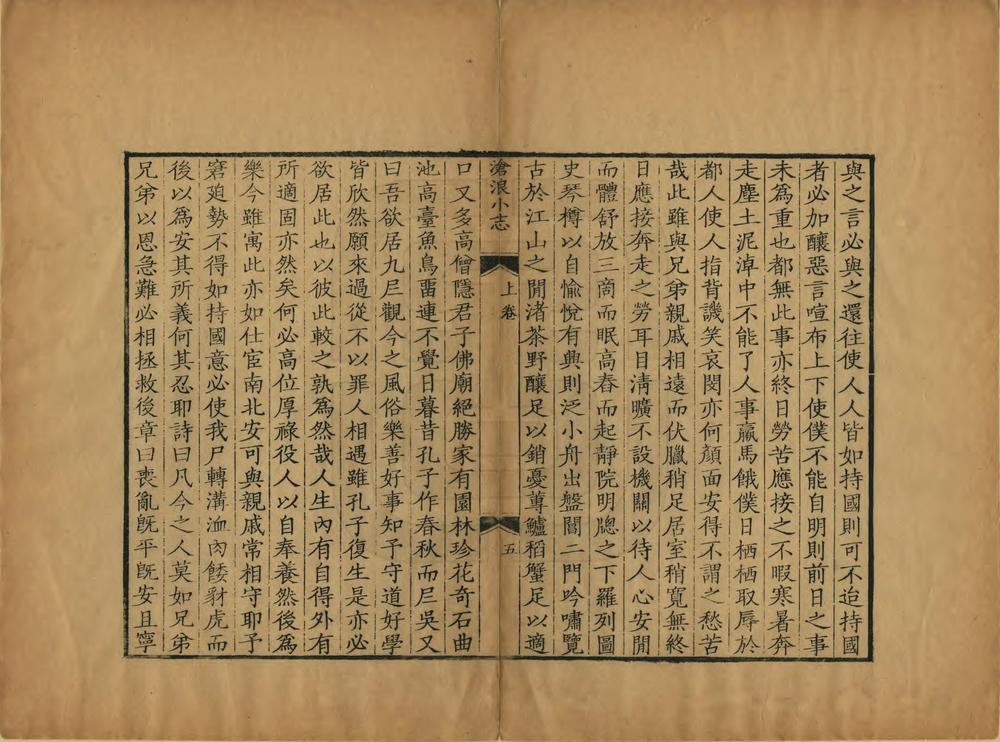 與之言必與之還往使人人皆如持國則可不迨持國
者必加釀惡言喧布上下使僕不能自明則前日之事
未為重也都無此事亦終日勞苦應接之不暇寒暑奔
走塵土泥淖中不能了人事羸馬餓僕日栖栖取辱於
都人使人指背譏笑哀閔亦何顏面安得不謂之愁苦
哉此雖與兄弟親戚相遠而伏臘稍足居室稍寬無終
日應接奔走之勞耳目清曠不設機關以待人心安閒
而體舒放三商而眠高舂而起靜院明牕之下羅列圖
史琴樽以自愉悅有興則泛小舟出盤閶二門吟嘯覽
古於江山之閒渚茶野釀足以銷憂蓴鱸稻蟹足以適
滄浪小志
上卷
五
口又多高僧隱君子佛廟絕勝家有園林珍花奇石曲
池高臺魚鳥畱連不覺日暮昔孔子作春秋而𡰥吳又
曰吾欲居九𡰥觀今之風俗樂善好事知予守道好學
皆欣然願來過從不以罪人相遇雖孔子復生是亦必
欲居此也以彼此較之孰為然哉人生內有自得外有
所適固亦然矣何必高位厚祿役人以自奉養然後為
樂今雖寓此亦如仕宦南北安可與親戚常相守耶予
窘廹勢不得如持國意必使我尸轉溝洫肉餧豺虎而
後以為安其所義何其忍耶詩曰凡今之人莫如兄弟
兄弟以恩急難必相拯救後章曰喪亂旣平旣安且寧